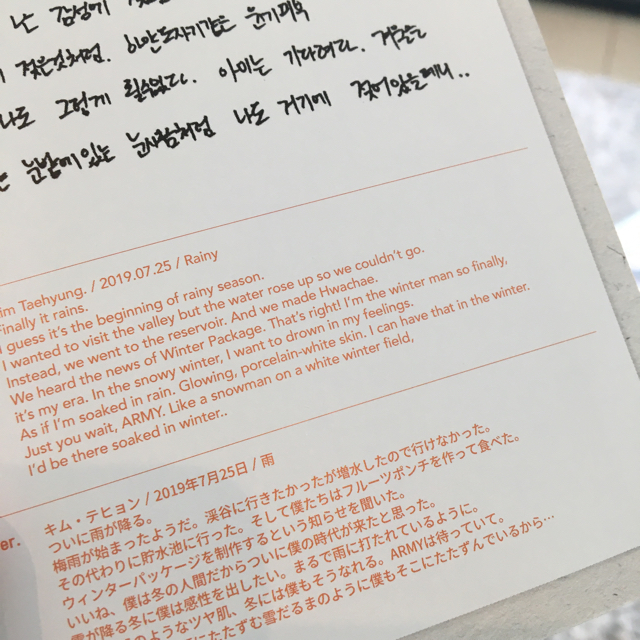 난 감성에
젖은것처럼. 물안도자기같은 윤기피부
나도 그렇게 될수있다. 아미는 기다려라. 겨울눈
눈밭에있는 눈사람처럼 나도 거기에 젖어있을테니..
im Taehyung. / 2019.07.25 / Rainy
Finally it rains.
I guess it's the beginning of rainy season.
I wanted to visit the valley but the water rose up so we couldn't go.
Instead, we went to the reservoir. And we made Hwachae.
We heard the news of Winter Package. That's right! I'm the winter man so finally,
it's my era. In the snowy winter, I want to drown in my feelings.
As if I'm soaked in rain. Glowing, porcelain-white skin. I can have that in the winter.
Just you wait, ARMY. Like a snowman on a white winter field,
I'd be there soaked in winter..
er.
キム・テヒョン / 2019年7月25日 / 雨
ついに雨が降る。
梅雨が始まったようだ。渓谷に行きたかったが増水したので行けなかった。
その代わりに貯水池に行った。そして僕たちはフルーツポンチを作って食べた。
ウィンターパッケージを制作するという知らせを聞いた。
いいね、僕は冬の人間だからついに僕の時代が来たと思った。
雪が降る冬に僕は感性を出したい。まるで雨に打たれているように。
のようなツヤ肌、冬には僕もそうなれる。ARMYは待っていて。
にたたずむ雪だるまのように僕もそこにたたずんでいるから…